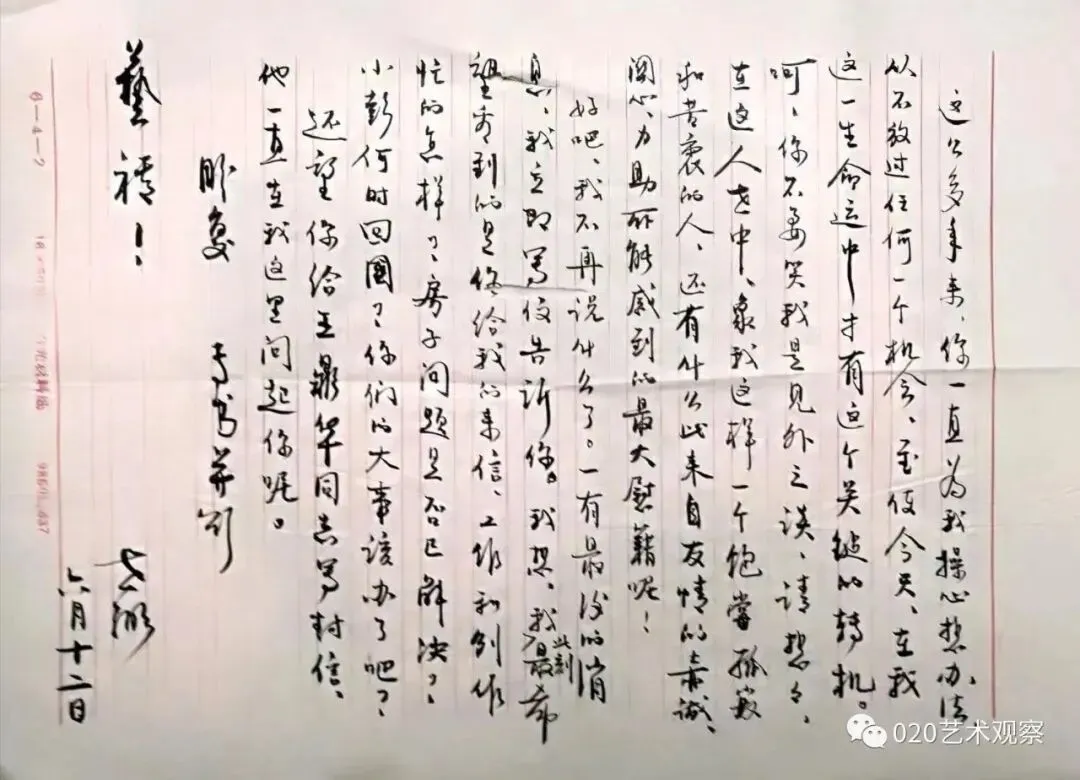 这么多年来，你一直为我操心想办法
从不放过任何一个机会，至使今天，在我
这一生命运中才有这个关键的转机。
呵，你不要笑我是见外之谈，请想々，
在这人世中，象我这样一个饱尝孤寂
和苦衷的人，还有什么比来自友情的赤诚、
关心、力助所能感到的最大慰藉呢！
好吧，我不再说什么了。一有最后的消
息，我立即写信告诉你。我想，我此刻最希
望看到的是您给我的来信，工作和创作
忙的怎样了，房子问题是否已解决了，
小彭何时回国了，你们的大事该办了吧？
还望你给王鼎华同志写封信，
他一直在我这里问起你呢。
盼复 专书并训
艺祺！
六月十二日
020艺术观察